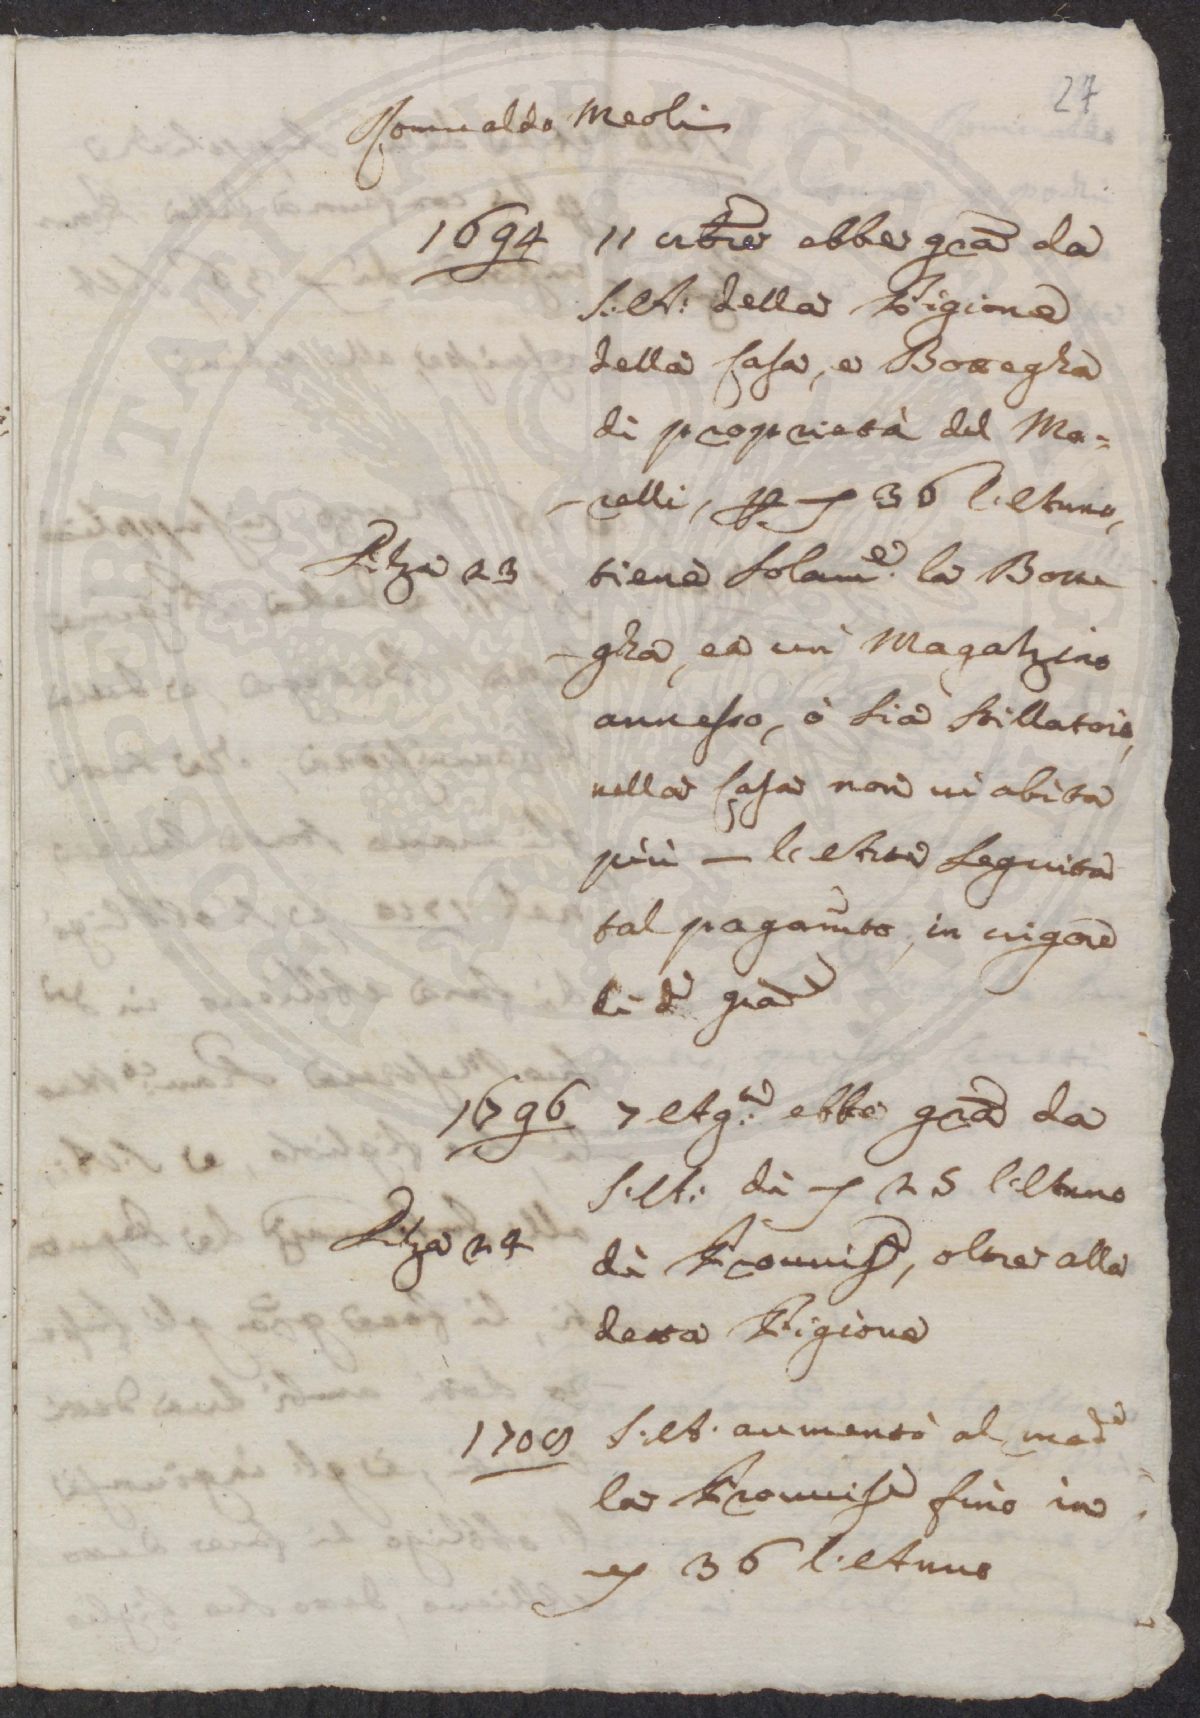 27
Romualdo Meoli
1694 11 xbre ebbe gra da
S. A. della Pigione
della Casa, e Bottegha
di proprietà del Ma=
relli, p 36 l'Anno,
Filza 23 tiene solam.e la Botte
gha, ed un Magahzino
annesso, ò sia stillatorio,
nella Casa non vi abita
più — l'A seguita
tal pagamto, in vigore
di d. gra
1696 7 Ag.o ebbe gra da
S. A. di 25 l'Anno
Filza 24 di Provvis.e, oltre alla
detta Pigione
1709 S. A. aumentò al med.o
la Provvis.e fino in
36 l'Anno